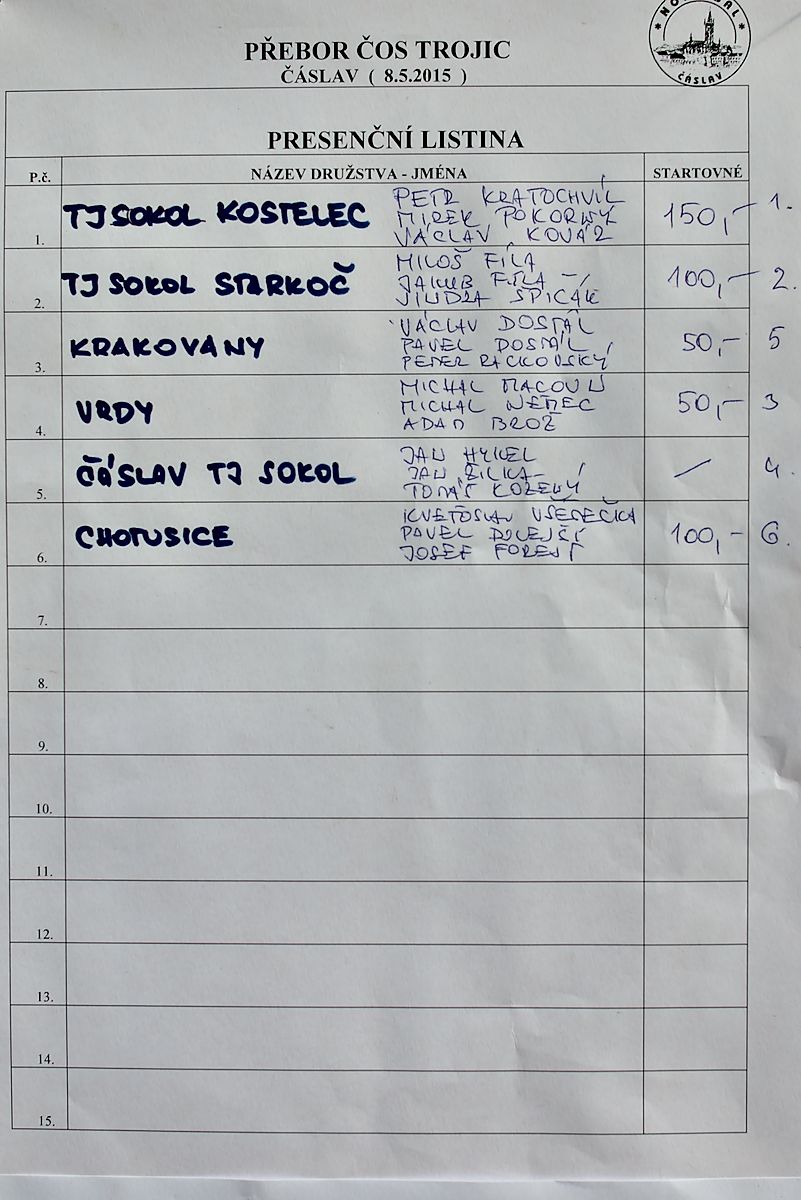 NOHEJBAL
ČÁSLAV
PŘEBOR ČOS TROJIC
ČÁSLAV ( 8.5.2015 )
PRESENČNÍ LISTINA
P.č. NÁZEV DRUŽSTVA - JMÉNA STARTOVNÉ
1. TJ SOKOL KOSTELEC PETR KRATOCHVÍL 150,- 1.
MIREK POKORNÝ
VÁCLAV KOVÁŘ
2. TJ SOKOL STARKOČ MILOŠ FILA 100,- 2.
JAKUB FILA
JINDRA ŠPIČÁK
3. KRAKOVANY VÁCLAV DOSTÁL 50,- 5
PAVEL DOSTÁL
PETER RAČKOVSKÝ
4. VRDY MICHAL 50,- 3
MICHAL NĚMEC
ADAM BROŽ
5. ČÁSLAV TJ SOKOL JAN HYKEL / 4.
JAN ŽILKA
TOMÁŠ KOŽENÝ
6. CHOTUSICE KVĚTOSLAV VŠETEČKA 100,- 6.
PAVEL DOLEJŠÍ
JOSEF FOREJT
7.
8.
9.
10.
11.
12.
13.
14.
15.